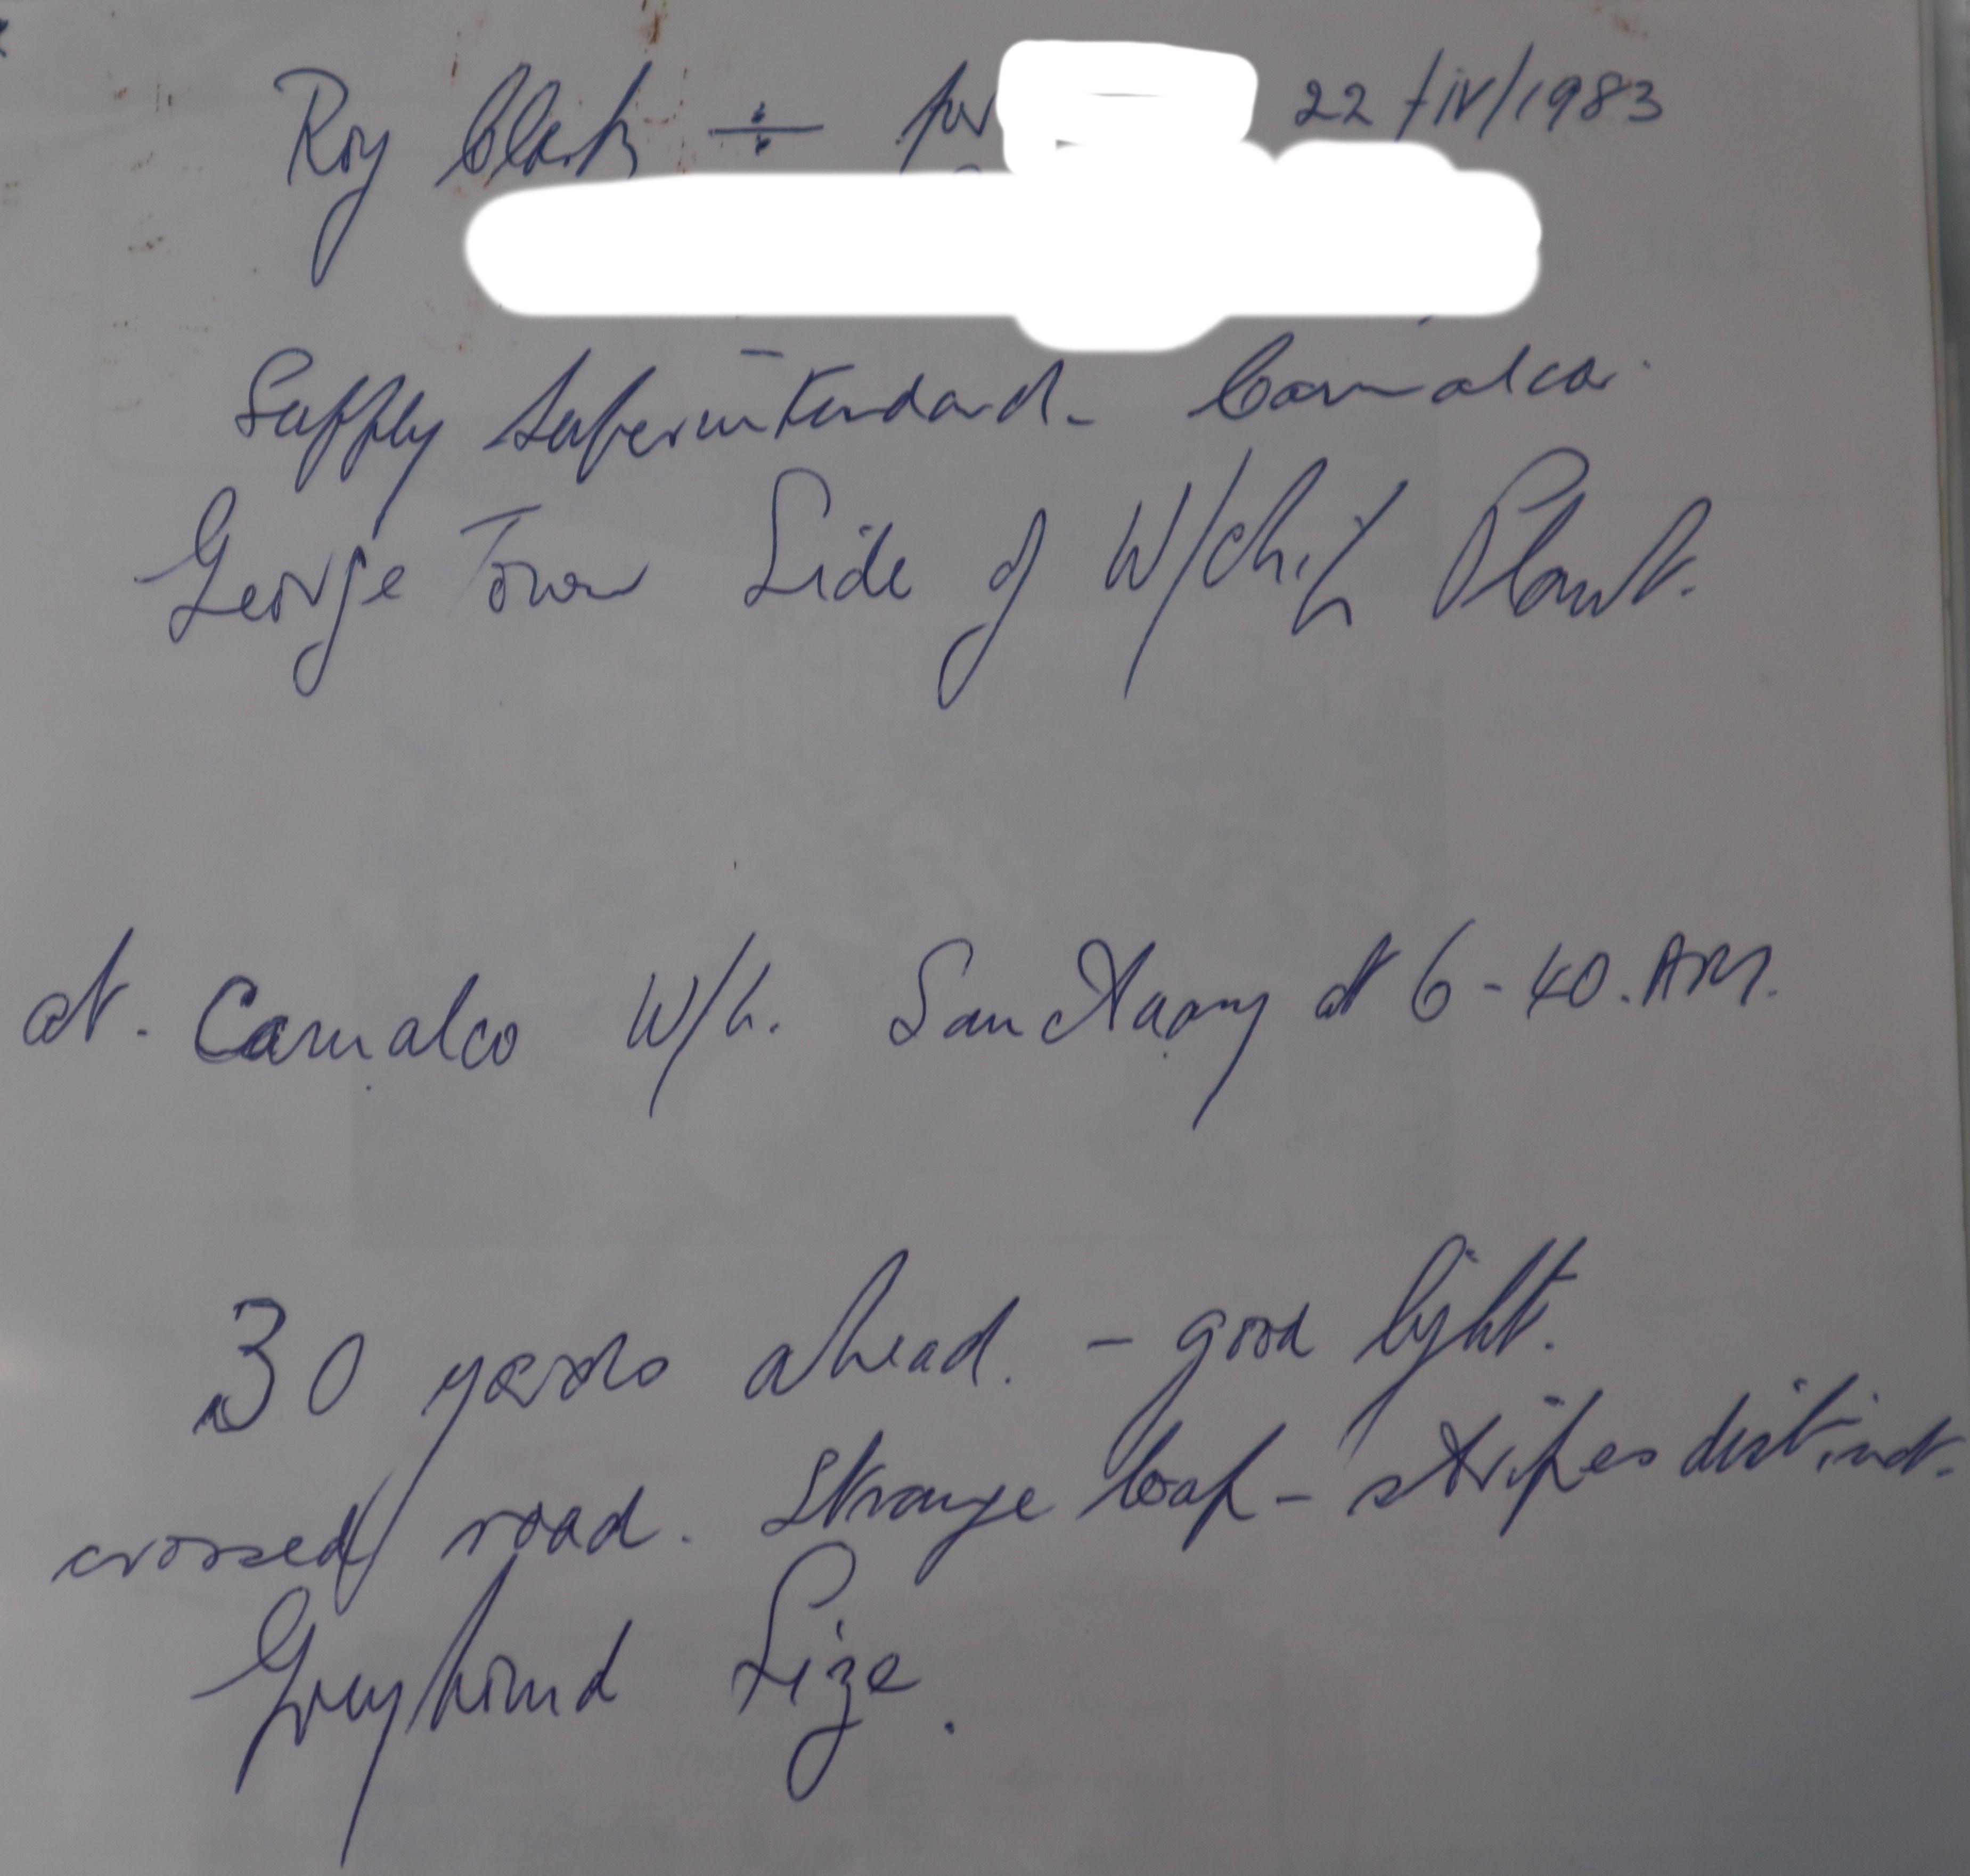 Roy Clark ÷ 22/iv/1983
Supply Superintendant - Comalco.
George Town Side of W/chip Plant.
at. Comalco W/L. Sanctuary at 6-40. AM.
30 yards ahead. - good light.
crossed road. Strange lope - stripes distinct.
Greyhound Size.